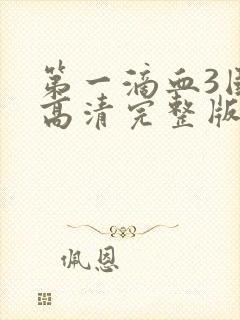 第一滴血3国
高清完整版
佩恩